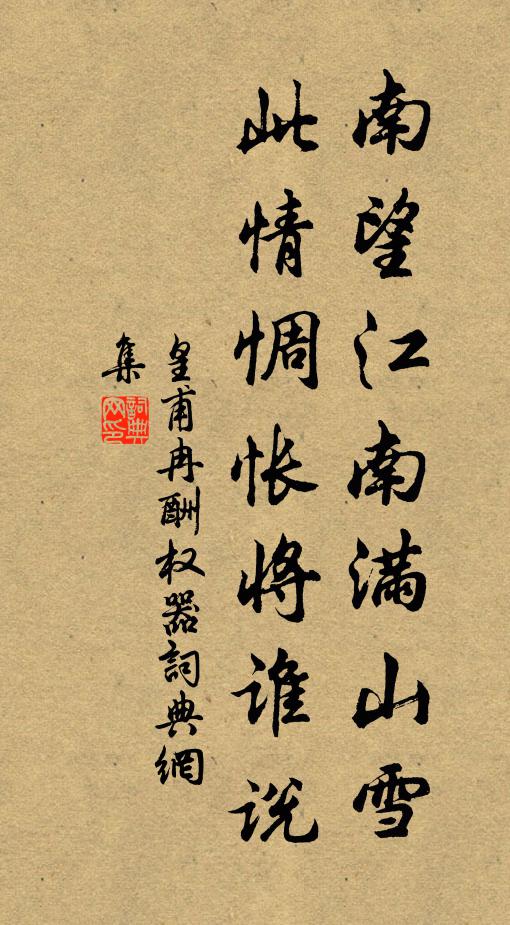 南望江南满山雪
此情惆怅将谁说
皇甫冉酬权器詞典網
集
詞典
网印